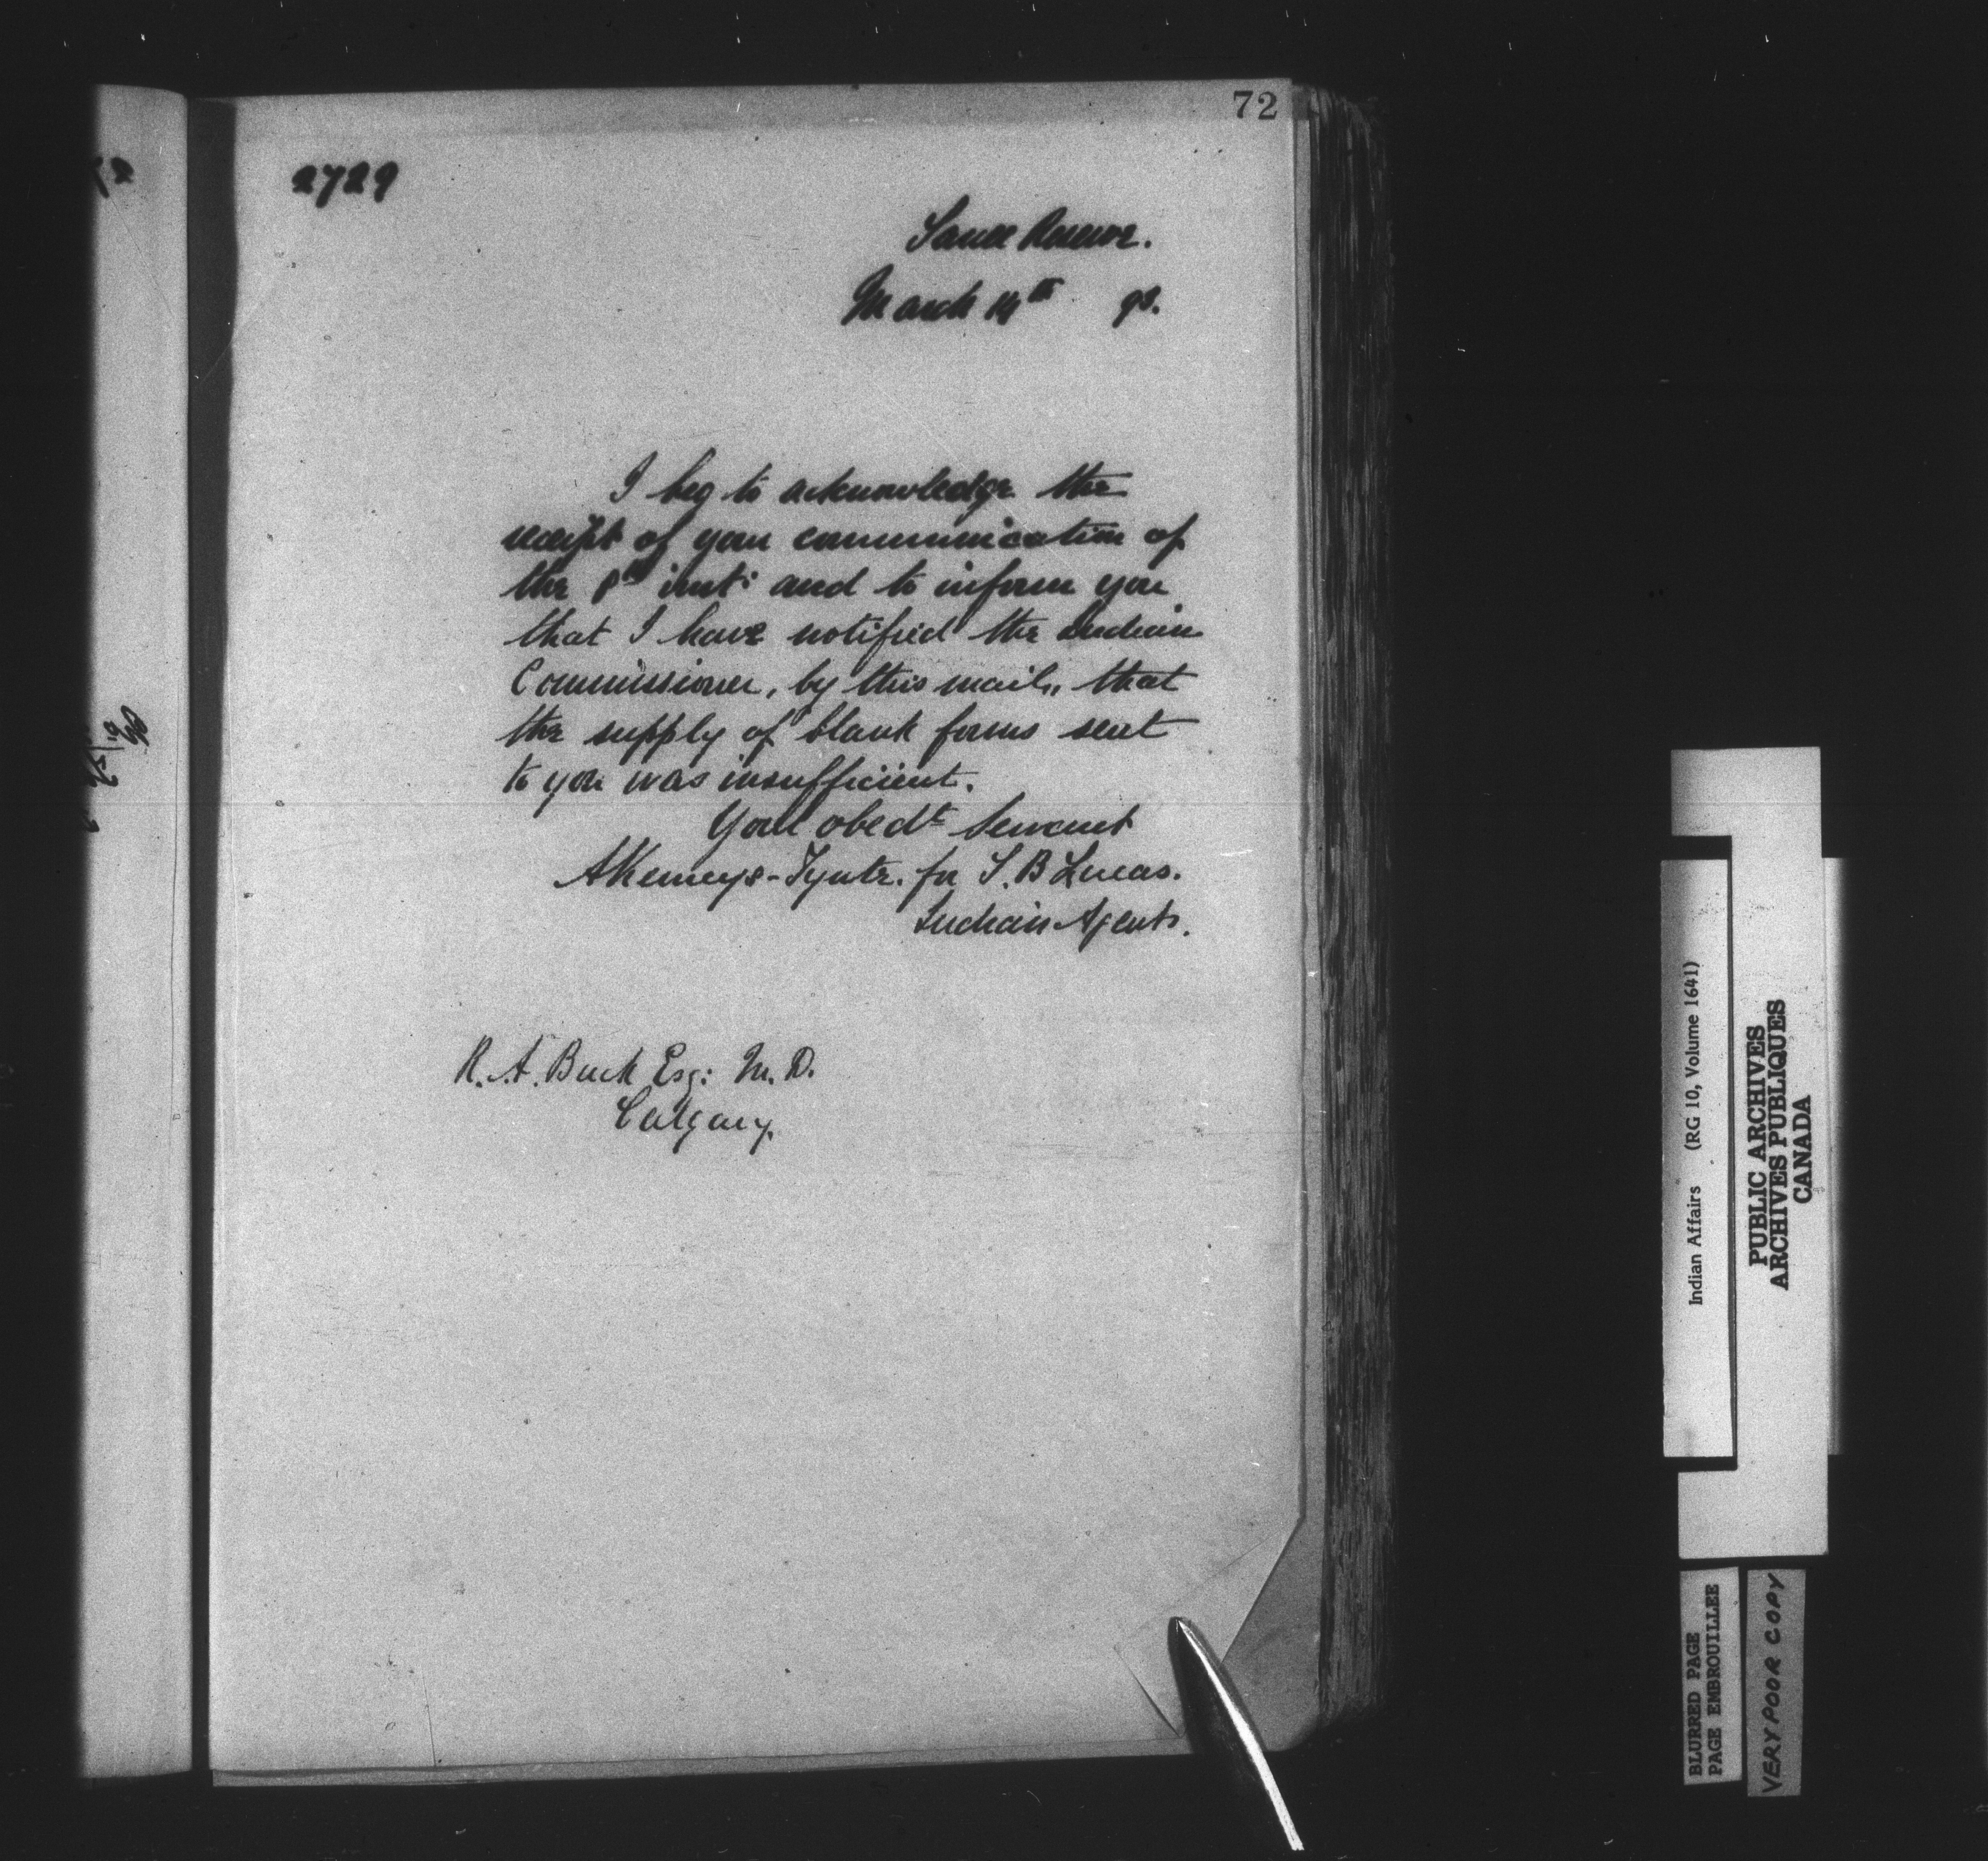 72
2729
Sarcee Reserve.
March 14th 93.
I beg to acknowledge the
receipt of your communication of
the 8th inst: and to inform you
that I have notified the Indian
Commissioner, by this mail, that
the supply of blank forms sent
to you was insufficient.
Your obedt Servant
AKemeys-Tynte. for S. B Lucas.
Indian Agent.
R. A. Buck Esq: M. D.
Calgary.
Indian Affairs (RG 10, Volume 1641)
PUBLIC ARCHIVES
ARCHIVES PUBLIQUES
CANADA
BLURRED PAGE
PAGE EMBROUILLEE
VERY POOR COPY